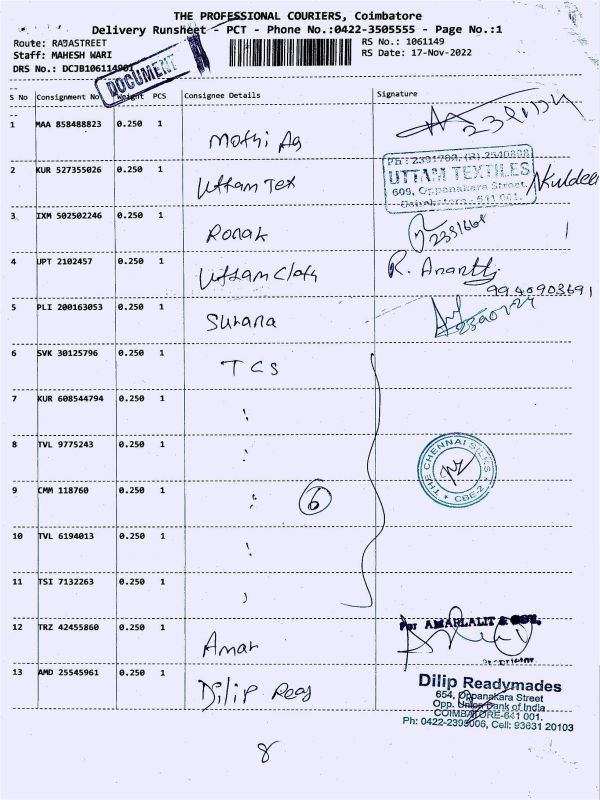 THE PROFESSIONAL COURIERS, Coimbatore
Delivery Runsheet - PCT - Phone No.:0422-3505555 - Page No.:1
Route: RAJASTREET
RS No.: 1061149
Staff: MAHESH WARI
RS Date: 17-Nov-2022
DRS No.: DCJB106114901
DOCUMENT
S No Consignment No Weight PCS Consignee Details Signature
1 MAA 858488823 0.250 1 Mothi Ag
2 KUR 527355026 0.250 1 Uttam Tex
Ph : 2391799, (R) 2540808
UTTAM TEXTILES
609, Oppanakara Street,
Coimbatore - 641 001.
Kuldeep
3 IXM 502502246 0.250 1 Ronak
4 UPT 2102457 0.250 1 Uttam Cloth R. Ananth
9940903691
5 PLI 200163053 0.250 1 Surana
6 SVK 30125796 0.250 1 TCS
7 KUR 608544794 0.250 1
8 TVL 9775243 0.250 1
THE CHENNAI SILKS
CBE-2
9 CMM 118760 0.250 1 6
10 TVL 6194013 0.250 1
11 TSI 7132263 0.250 1
For AMARLALIT & CO.,
12 TRZ 42455860 0.250 1 Amar
13 AMD 25545961 0.250 1 Dilip Reas
Dilip Readymades
654, Oppanakara Street
Opp. Union Bank of India
COIMBATORE-641 001.
Ph: 0422-2398006, Cell: 93631 20103
8